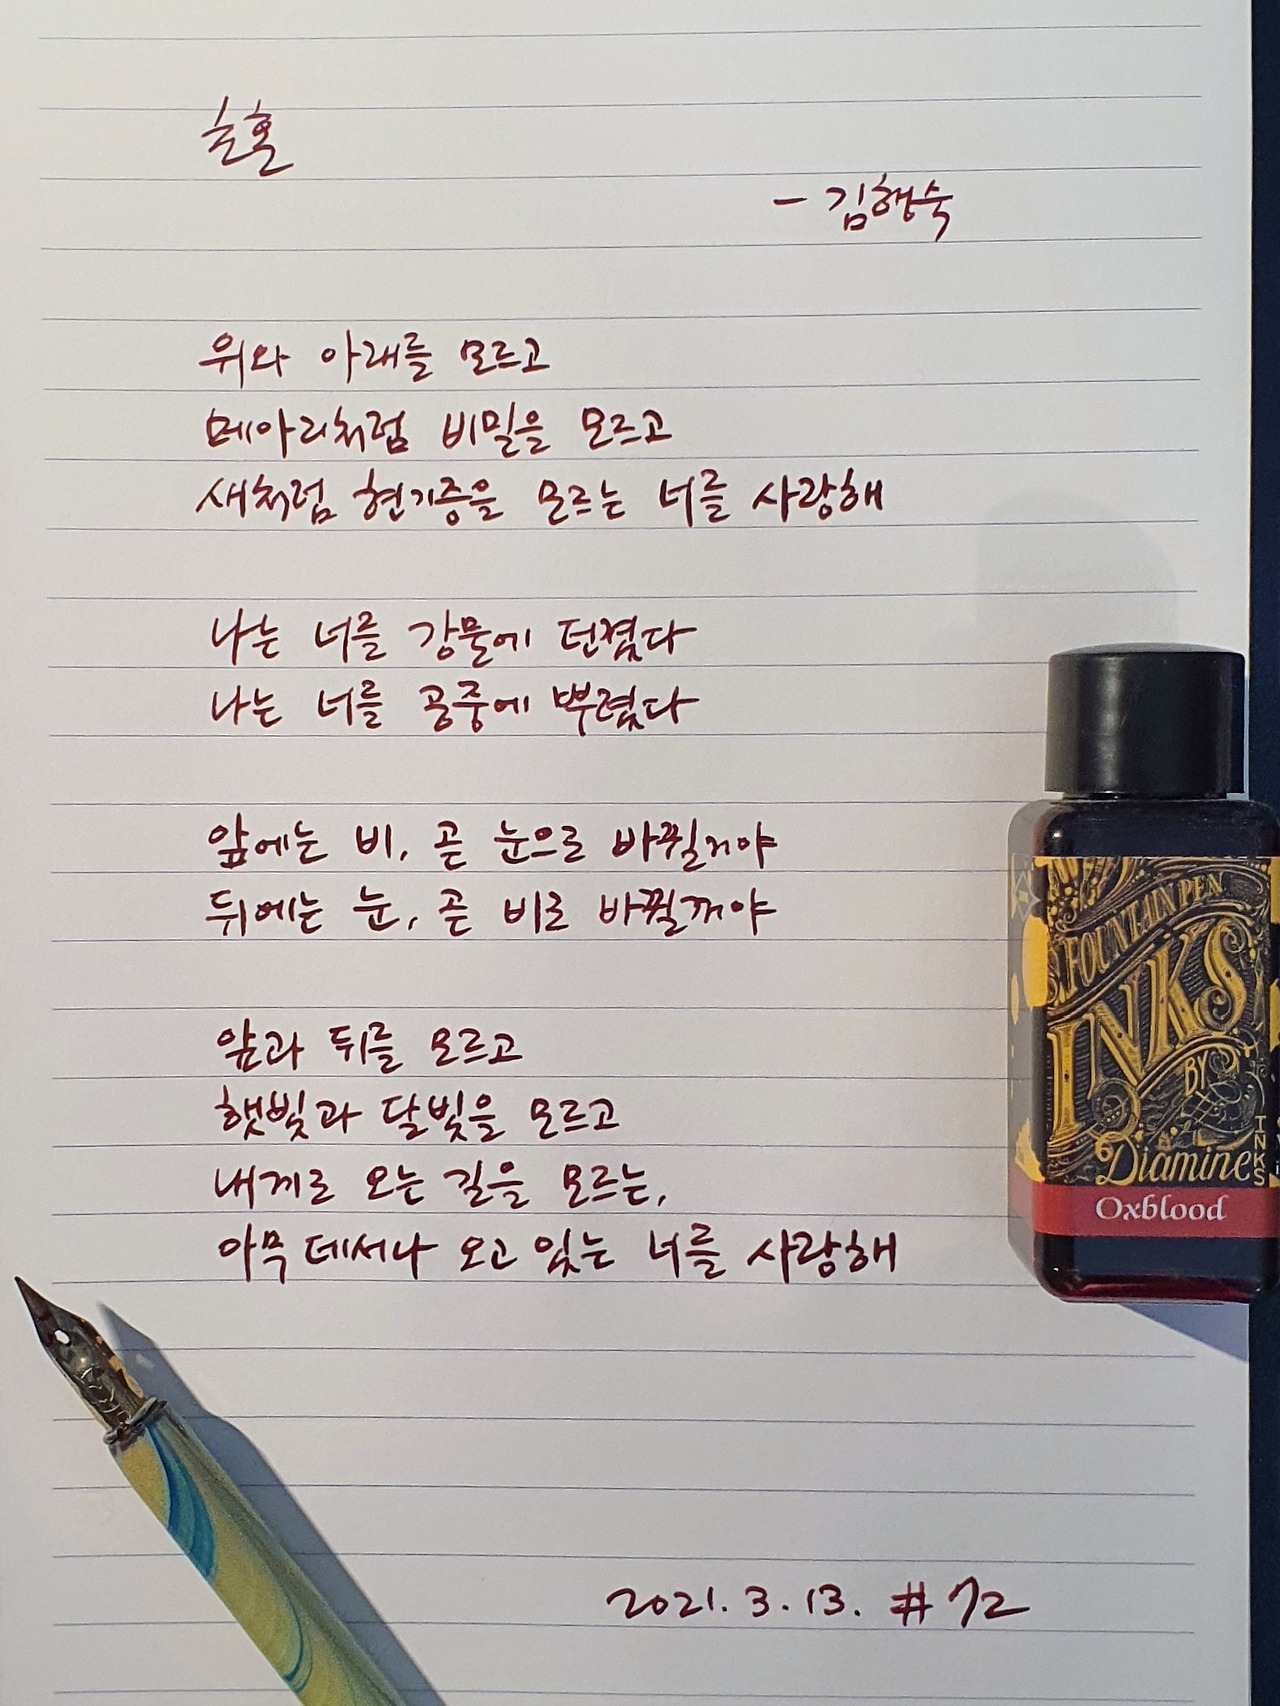 초혼
- 김행숙
위와 아래를 모르고
메아리처럼 비밀을 모르고
새처럼 현기증을 모르는 너를 사랑해
나는 너를 강물에 던졌다
나는 너를 공중에 뿌렸다
앞에는 비, 곧 눈으로 바뀔거야
뒤에는 눈, 곧 비로 바뀔꺼야
앞과 뒤를 모르고
햇빛과 달빛을 모르고
내게로 오는 길을 모르는,
아무 데서나 오고 있는 너를 사랑해
2021. 3. 13. # 72
FOUNTAIN PEN
INKS
BY
Diamine
INKS
Oxblood